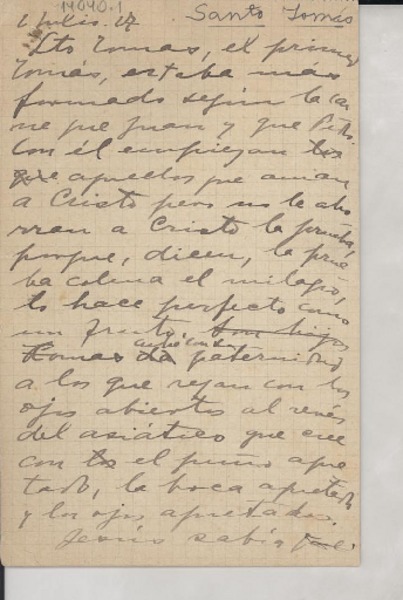 14040.1
1 Julio. 27 Santo Tomás
Sto Tomas, el primer
Tomás, estaba más
formado según la car
ne que Juan y que Pedro.
Con él empiezan los
que aquellos que aman
a Cristo pero no le aho
rran a Cristo la prueba,
porque, dicen, la prue
ba colma el milagro,
lo hace perfecto como
un fruto. Son hijos
Tomas da paternidad
a los que rezan con los
ojos abiertos al revés
del asiático que cree
con el puño apre
tado, la boca apretada
y los ojos apretados.
Jesús sabía